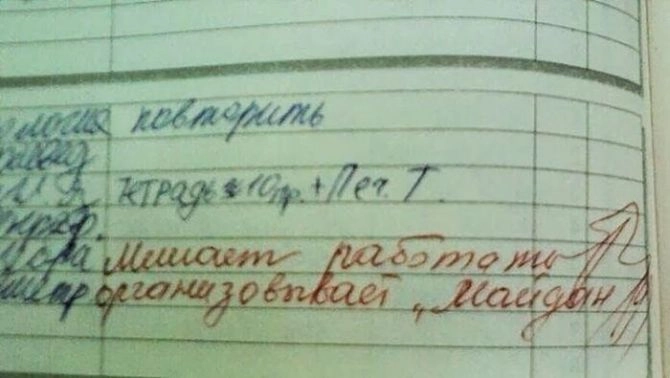 ология повторить
тетрадь 10 пр. + Печ. Т.
Мешает работать
организовывает "Майдан"